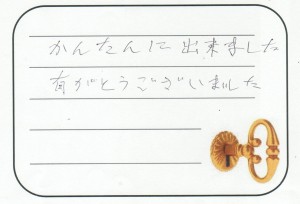 かんたんに出来ました
有がとうございました